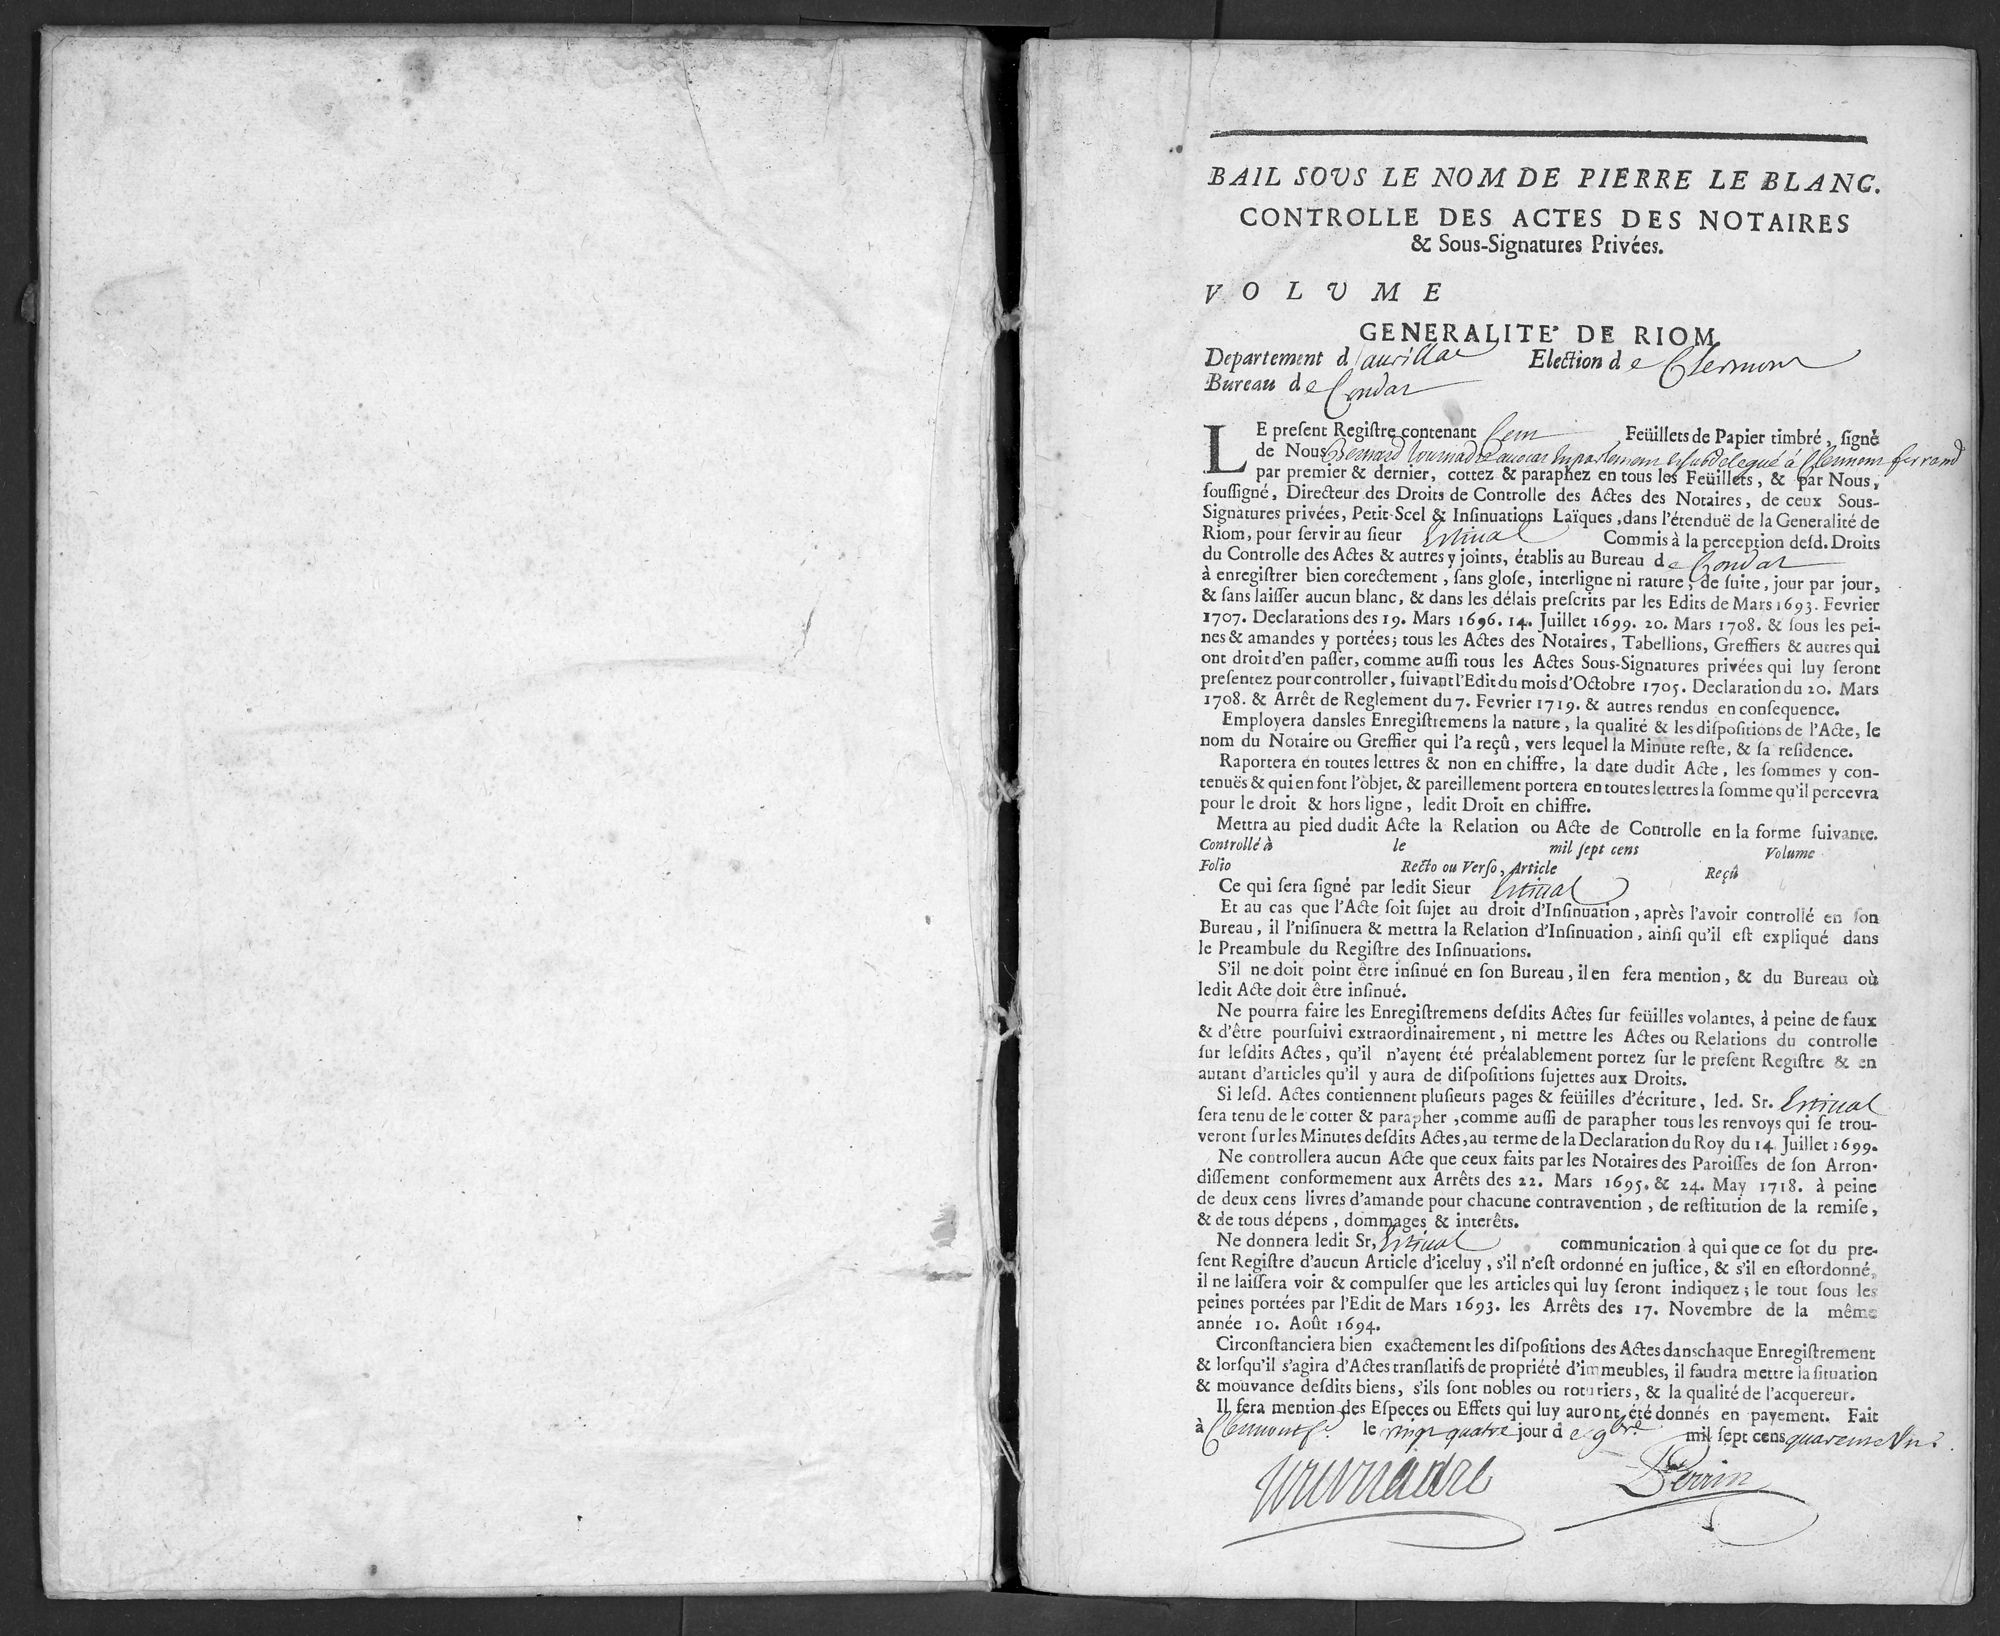 BAIL SOVS LE NOM DE PIERRE LE BLANC.
CONTROLLE DES ACTES DES NOTAIRES
& Sous-Signatures Privées.
VOLVME
GENERALITE' DE RIOM
Departement d'aurillac Election de Clermont
Bureau de Condat
LE preſent Regiſtre contenant Cent Feüillets de Papier timbré, ſigné
de Nous Bernard Tournadre avocat en parlement et subdelegué à Clermont ferrand
par premier & dernier, cottez & paraphez en tous les Feüillets, & par Nous,
ſouſſigné, Directeur des Droits de Controlle des Actes des Notaires, de ceux Sous-
Signatures privées, Petit-Scel & Inſinuations Laïques, dans l'étenduë de la Generalité de
Riom, pour ſervir au ſieur Estival Commis à la perception deſd. Droits
du Controlle des Actes & autres y joints, établis au Bureau de Condat
à enregiſtrer bien corectement, ſans gloſe, interligne ni rature, de ſuite, jour par jour,
& ſans laiſſer aucun blanc, & dans les délais preſcrits par les Edits de Mars 1693. Fevrier
1707. Declarations des 19. Mars 1696. 14. Juillet 1699. 20. Mars 1708. & ſous les pei-
nes & amandes y portées; tous les Actes des Notaires, Tabellions, Greffiers & autres qui
ont droit d'en paſſer, comme auſſi tous les Actes Sous-Signatures privées qui luy ſeront
preſentez pour controller, ſuivant l'Edit du mois d'Octobre 1705. Declaration du 20. Mars
1708. & Arrêt de Reglement du 7. Fevrier 1719. & autres rendus en conſequence.
Employera dansles Enregiſtremens la nature, la qualité & les diſpoſitions de l'Acte, le
nom du Notaire ou Greffier qui l'a reçû, vers lequel la Minute reſte, & ſa reſidence.
Raportera en toutes lettres & non en chiffre, la date dudit Acte, les ſommes y con-
tenuës & qui en font l'objet, & pareillement portera en toutes lettres la ſomme qu'il percevra
pour le droit & hors ligne, ledit Droit en chiffre.
Mettra au pied dudit Acte la Relation ou Acte de Controlle en la forme ſuivante.
Controllé à le mil ſept cens Volume
Folio Recto ou Verſo, Article Reçû
Ce qui ſera ſigné par ledit Sieur Estival
Et au cas que l'Acte ſoit ſujet au droit d'Inſinuation, après l'avoir controllé en ſon
Bureau, il l'niſinuera & mettra la Relation d'Inſinuation, ainſi qu'il eſt expliqué dans
le Preambule du Regiſtre des Inſinuations.
S'il ne doit point être inſinué en ſon Bureau, il en fera mention, & du Bureau où
ledit Acte doit être inſinué.
Ne pourra faire les Enregiſtremens deſdits Actes ſur feüilles volantes, à peine de faux
& d'être pourſuivi extraordinairement, ni mettre les Actes ou Relations du controlle
ſur leſdits Actes, qu'il n'ayent été préalablement portez ſur le preſent Regiſtre & en
autant d'articles qu'il y aura de diſpoſitions ſujettes aux Droits.
Si leſd. Actes contiennent pluſieurs pages & feüilles d'écriture, led. Sr. Estival
ſera tenu de le cotter & parapher, comme auſſi de parapher tous les renvoys qui ſe trou-
veront ſur les Minutes deſdits Actes, au terme de la Declaration du Roy du 14. Juillet 1699.
Ne controllera aucun Acte que ceux faits par les Notaires des Paroiſſes de ſon Arron-
diſſement conformement aux Arrêts des 22. Mars 1695. & 24. May 1718. à peine
de deux cens livres d'amande pour chacune contravention, de reſtitution de la remiſe,
& de tous dépens, dommages & interêts.
Ne donnera ledit Sr. Estival communication à qui que ce ſot du pre-
ſent Regiſtre d'aucun Article d'iceluy, s'il n'eſt ordonné en juſtice, & s'il en eſtordonné,
il ne laiſſera voir & compulſer que les articles qui luy ſeront indiquez; le tout ſous les
peines portées par l'Edit de Mars 1693. les Arrêts des 17. Novembre de la même
année 10. Août 1694.
Circonſtanciera bien exactement les diſpoſitions des Actes danschaque Enregiſtrement
& lorſqu'il s'agira d'Actes tranſlatifs de propriété d'immeubles, il faudra mettre la ſituation
& mouvance deſdits biens, s'ils ſont nobles ou roturiers, & la qualité de l'acquereur.
Il fera mention des Eſpeces ou Effets qui luy auront été donnés en payement. Fait
à Clermont fd. le vingt quatre jour de 9bre mil ſept cens quarente Un.
Tournadre Perrin